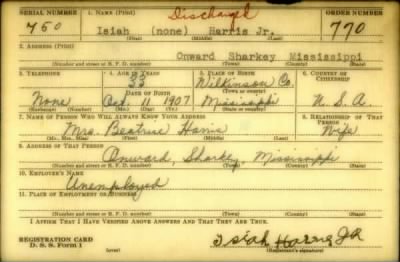 SERIAL NUMBER 1. NAME (Print) Discharged ORDER NUMBER
450 Isiah (none) Harris Jr. 770
(First) (Middle) (Last)
2. ADDRESS (Print)
Onward Sharkey Mississippi
(Number and street or R. F. D. number) (Town) (County) (State)
3. TELEPHONE 4. AGE IN YEARS 5. PLACE OF BIRTH 6. COUNTRY OF CITIZENSHIP
33 Wilkinson Co.
DATE OF BIRTH (Town or county)
None Oct 11 1907 Mississippi U. S. A.
(Exchange) (Number) (Mo.) (Day) (Yr.) (State or country)
7. NAME OF PERSON WHO WILL ALWAYS KNOW YOUR ADDRESS 8. RELATIONSHIP OF THAT PERSON
Mrs. Beatrice Harris Wife
(Mr., Mrs., Miss) (First) (Middle) (Last)
9. ADDRESS OF THAT PERSON
Onward, Sharkey, Mississippi
(Number and street or R. F. D. number) (Town) (County) (State)
10. EMPLOYER'S NAME
Unemployed
11. PLACE OF EMPLOYMENT OR BUSINESS
(Number and street or R. F. D. number) (Town) (County) (State)
I AFFIRM THAT I HAVE VERIFIED ABOVE ANSWERS AND THAT THEY ARE TRUE.
REGISTRATION CARD
D. S. S. Form 1 (over) Isiah Harris JR
(Registrant's signature)